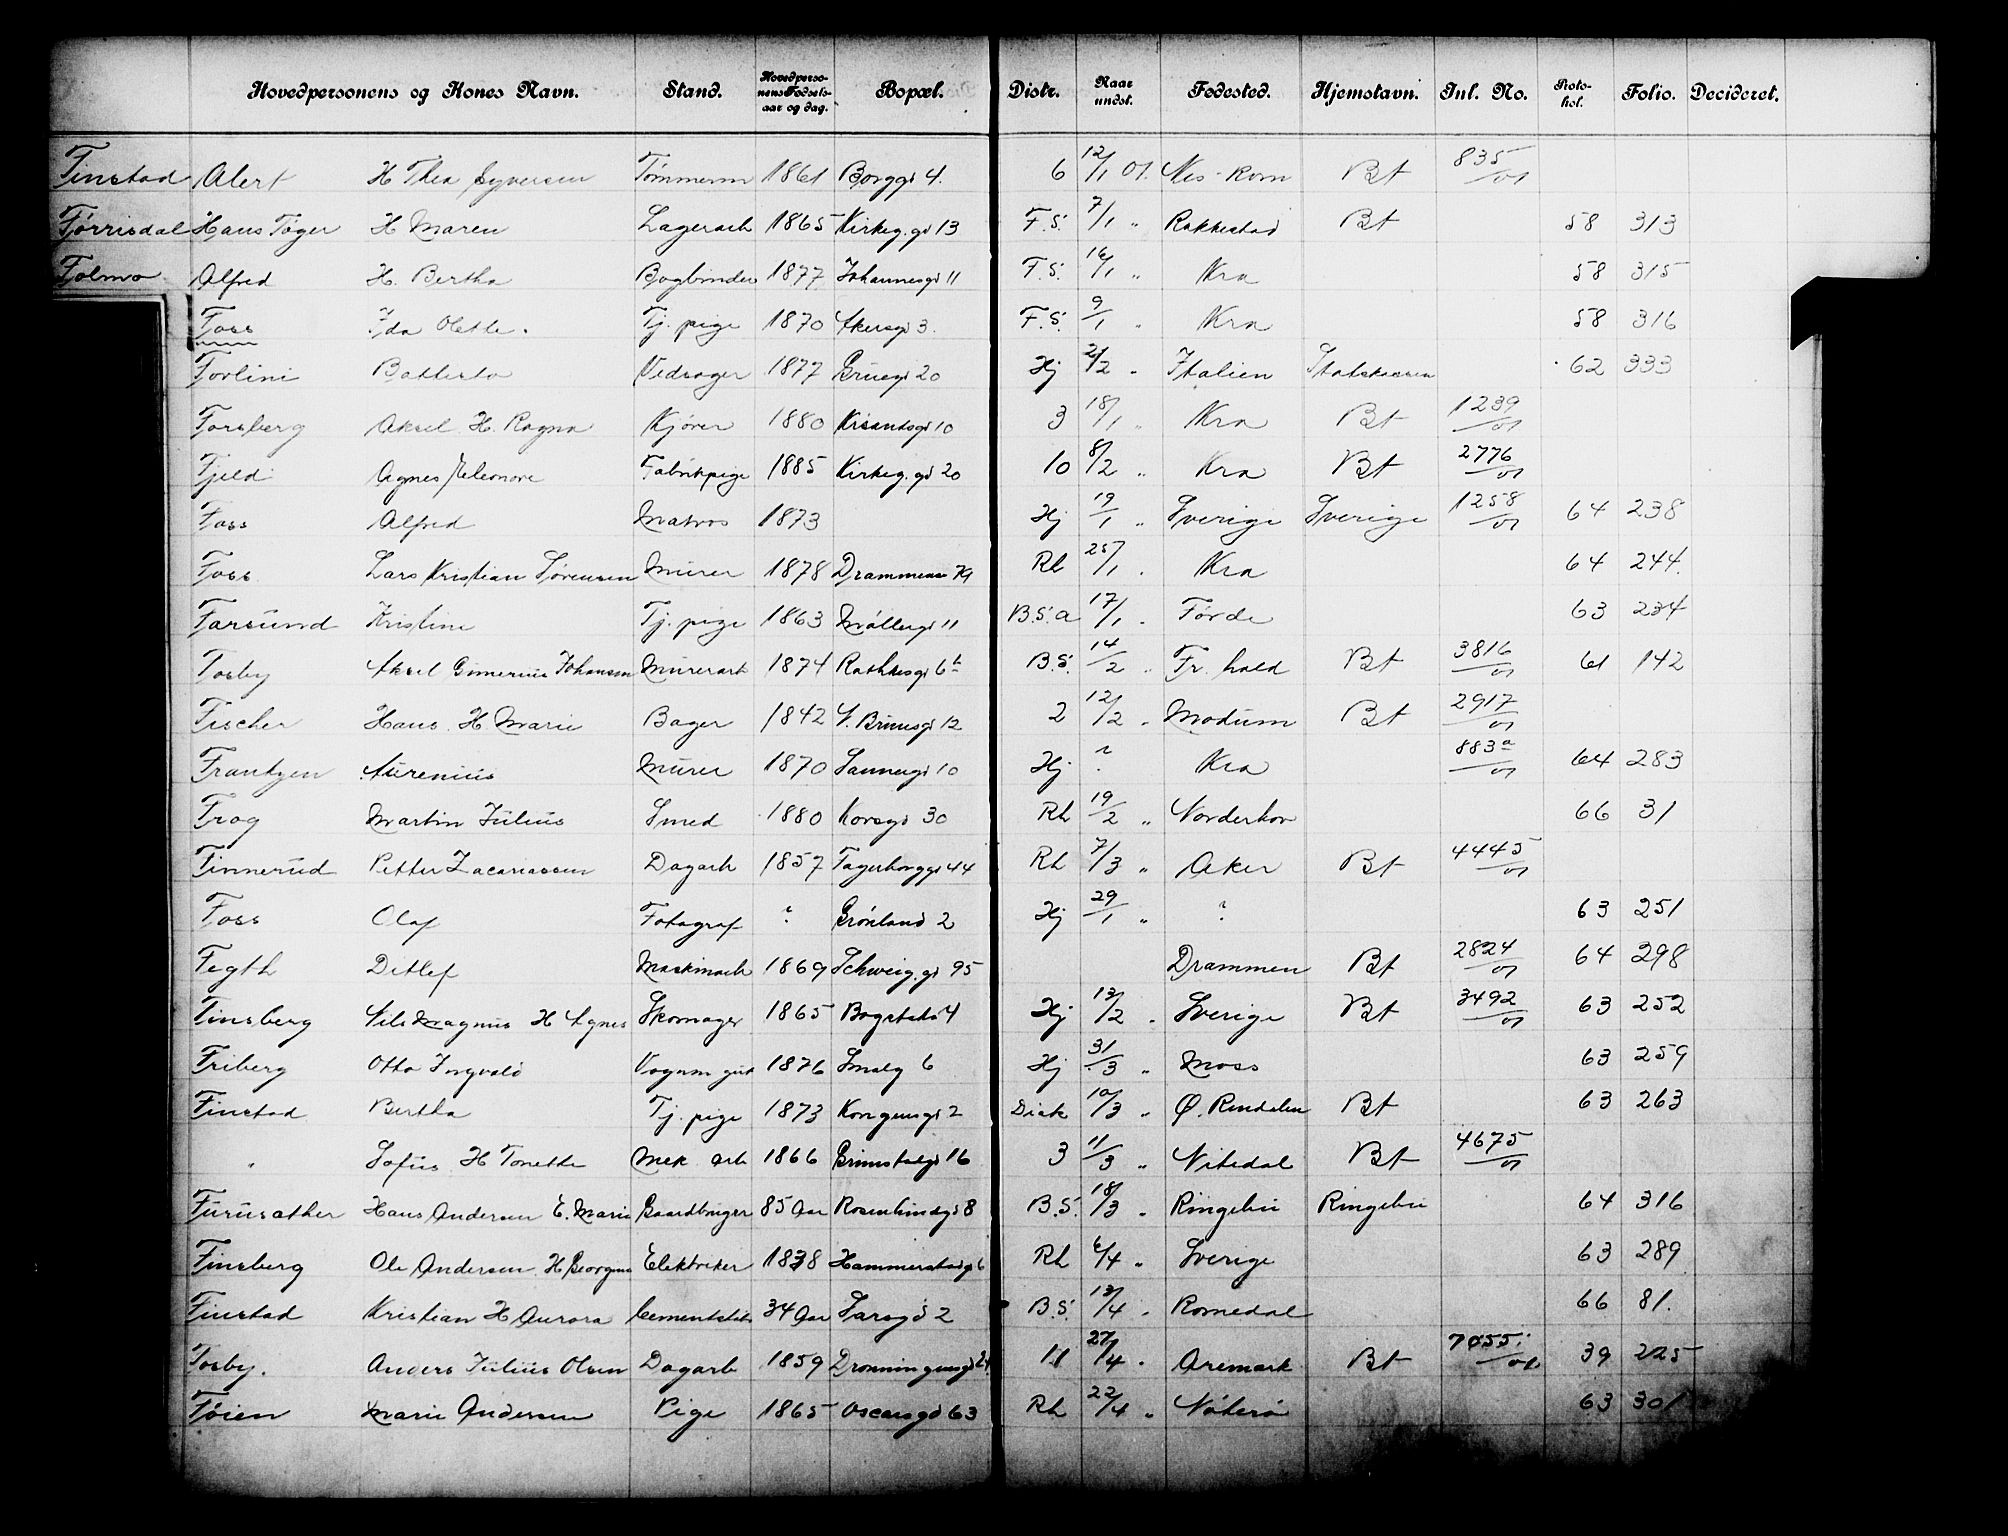 Hovedpersonens og Kones Navn. Stand. Hovedpersonens Fødselsaar og dag. Bopæl. Distr. Naar undst. Fødested. Hjemstavn. Inl. No. Protokol. Folio. Decideret.
Finstad Alert H Thea Syversen Tømmerm 1861 Borggd 4. 6 12/1 01. Nes-Rom Bt 835/01
Fjørrisdal Hans Tøger H Maren Lagerarb 1865 Kirkeg.gd 13 F.S. 7/1 " Rakkestad Bt 58 313
Folmo Alfred H. Bertha Bogbinder 1877 Johannesgd 11 F.S. 16/1 " Kra 58 315
Foss Ida Olette. Tj. pige 1870 Akersgd 3. F.S. 9/1 " Kra 58 316
Forlini Battesta Vedsager 1877 Brusgd 20 Hj 2/2 " Italien Statskassen 62 333
Forsberg Aksel H. Ragna Kjører 1880 Krsandsgd 10 3 18/1 " Kra Bt 1239/01
Fjeld Agnes Eleonore Fabrikpige 1885 Kirkeg.gd 20 10 8/2 " Kra Bt 2776/01
Foss Alfred Matros 1873 Hj 19/1 " Sverige Sverige 1258/01 64 238
Foss Lars Kristian Sørensen Murer 1878 Drammensv 79 Rh 25/1 . Kra 64 244.
Farsund Kristine Tj. pige 1863 Møllergd 11 B.S.a 17/1 . Førde 63 234
Fosby Aksel Gunerius Johansen Murerarb 1874 Rathkesgd 6b B.S. 14/2 " Fr.hald Bt 3816/01 61 142
Fischer Hans. H Marie Bager 1842 V. Brunsgd 12 2 12/2 " Modum Bt 2917/01
Frantzen Aurenius Murer 1870 Sannergd 10 Hj ? Kra 883a/01 64 283
Frog Martin Julius Smed 1880 Korsgd 30 Rh 19/2 " Norderhov 66 31
Finnerud Petter Zacariassen Dagarb 1857 Fagerborggd 44 Rh 7/3 " Aker Bt 4445/01
Foss Olaf Fotograf ? Grønland 2 Hj 29/1 " ? 63 251
Fegth Ditlef Maskinarb 1869 Schweig.gd 95 Drammen Bt 2824/01 64 298
Finsberg Nils Magnus H Agnes Skomager 1865 Bogstadv 4 Hj 13/2 . Sverige Bt 3492/01 63 252
Friberg Otto Ingvald Vognm gut 1876 Smalg 6 Hj 31/3 " Moss 63 259
Finstad Bertha Tj. pige 1873 Kongensgd 2 Disk 10/3 " Ø. Rendalen Bt 63 263
" Sofus H Tonette Mek arb 1866 Grimstadgd 16 3 11/3 " Nitedal Bt 4675/01
Furusather Hans Andersen E. Marie Gaardbruger 85 Aar Rosenlundsgd 8 B.S. 18/3 . Ringebu Ringebu 64 316
Finsberg Ole Andersen H Georgine Elektriker 1838 Hammerstadgd 6 Rh 6/4 " Sverige 63 289
Finstad Kristian H Aurora Cementstøb 34 Aar Sarsgd 2 B.S. 13/4 . Romedal 66 81.
Fosby. Anders Julius Olsen Dagarb 1859 Dronningensgd 24 11 27/4 . Aremark Bt 7055/01 39 225
Føien Marie Andersen Pige 1865 Oscarsgd 63 Rh 22/4 " Nøterø 63 301